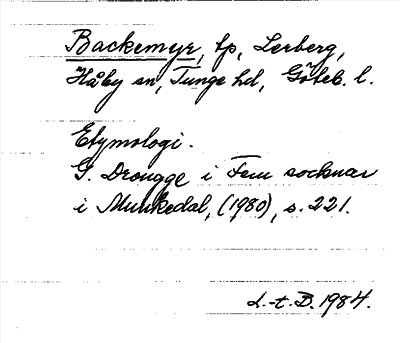 Backemyr, tp, Lerberg,
Håby sn, Tunge hd, Göteb. l.
Etymologi.
G. Drougge i Fem socknar
i Munkedal, (1980), s. 221.
L.-t. D. 1984.